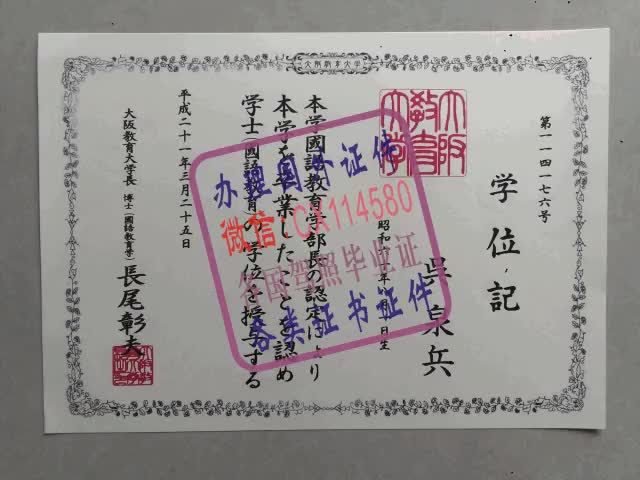 大阪教育大学
第一一四一七六号
学位記
大阪教育大学
呉泉兵
本学國語教育学部長の認定により
本学を卒業したことを認め
学士（國語教育）の学位を授与する
平成二十一年三月二十五日
大阪教育大学長 博士（國語教育学）
長尾彰夫
办理国外证件
微信:CX114580
各国驾照毕业证
各类证书证件